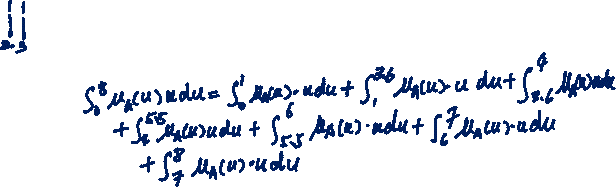 ∫₀⁸ μ_A(u) u du = ∫₀¹ μ_A(u)·u du + ∫₁^3.6 μ_A(u)·u du + ∫_3.6^4 μ_A(u) u du
+ ∫₄^5.5 μ_A(u) u du + ∫_5.5^6 μ_A(u)·u du + ∫₆⁷ μ_A(u)·u du
+ ∫₇⁸ μ_A(u)·u du